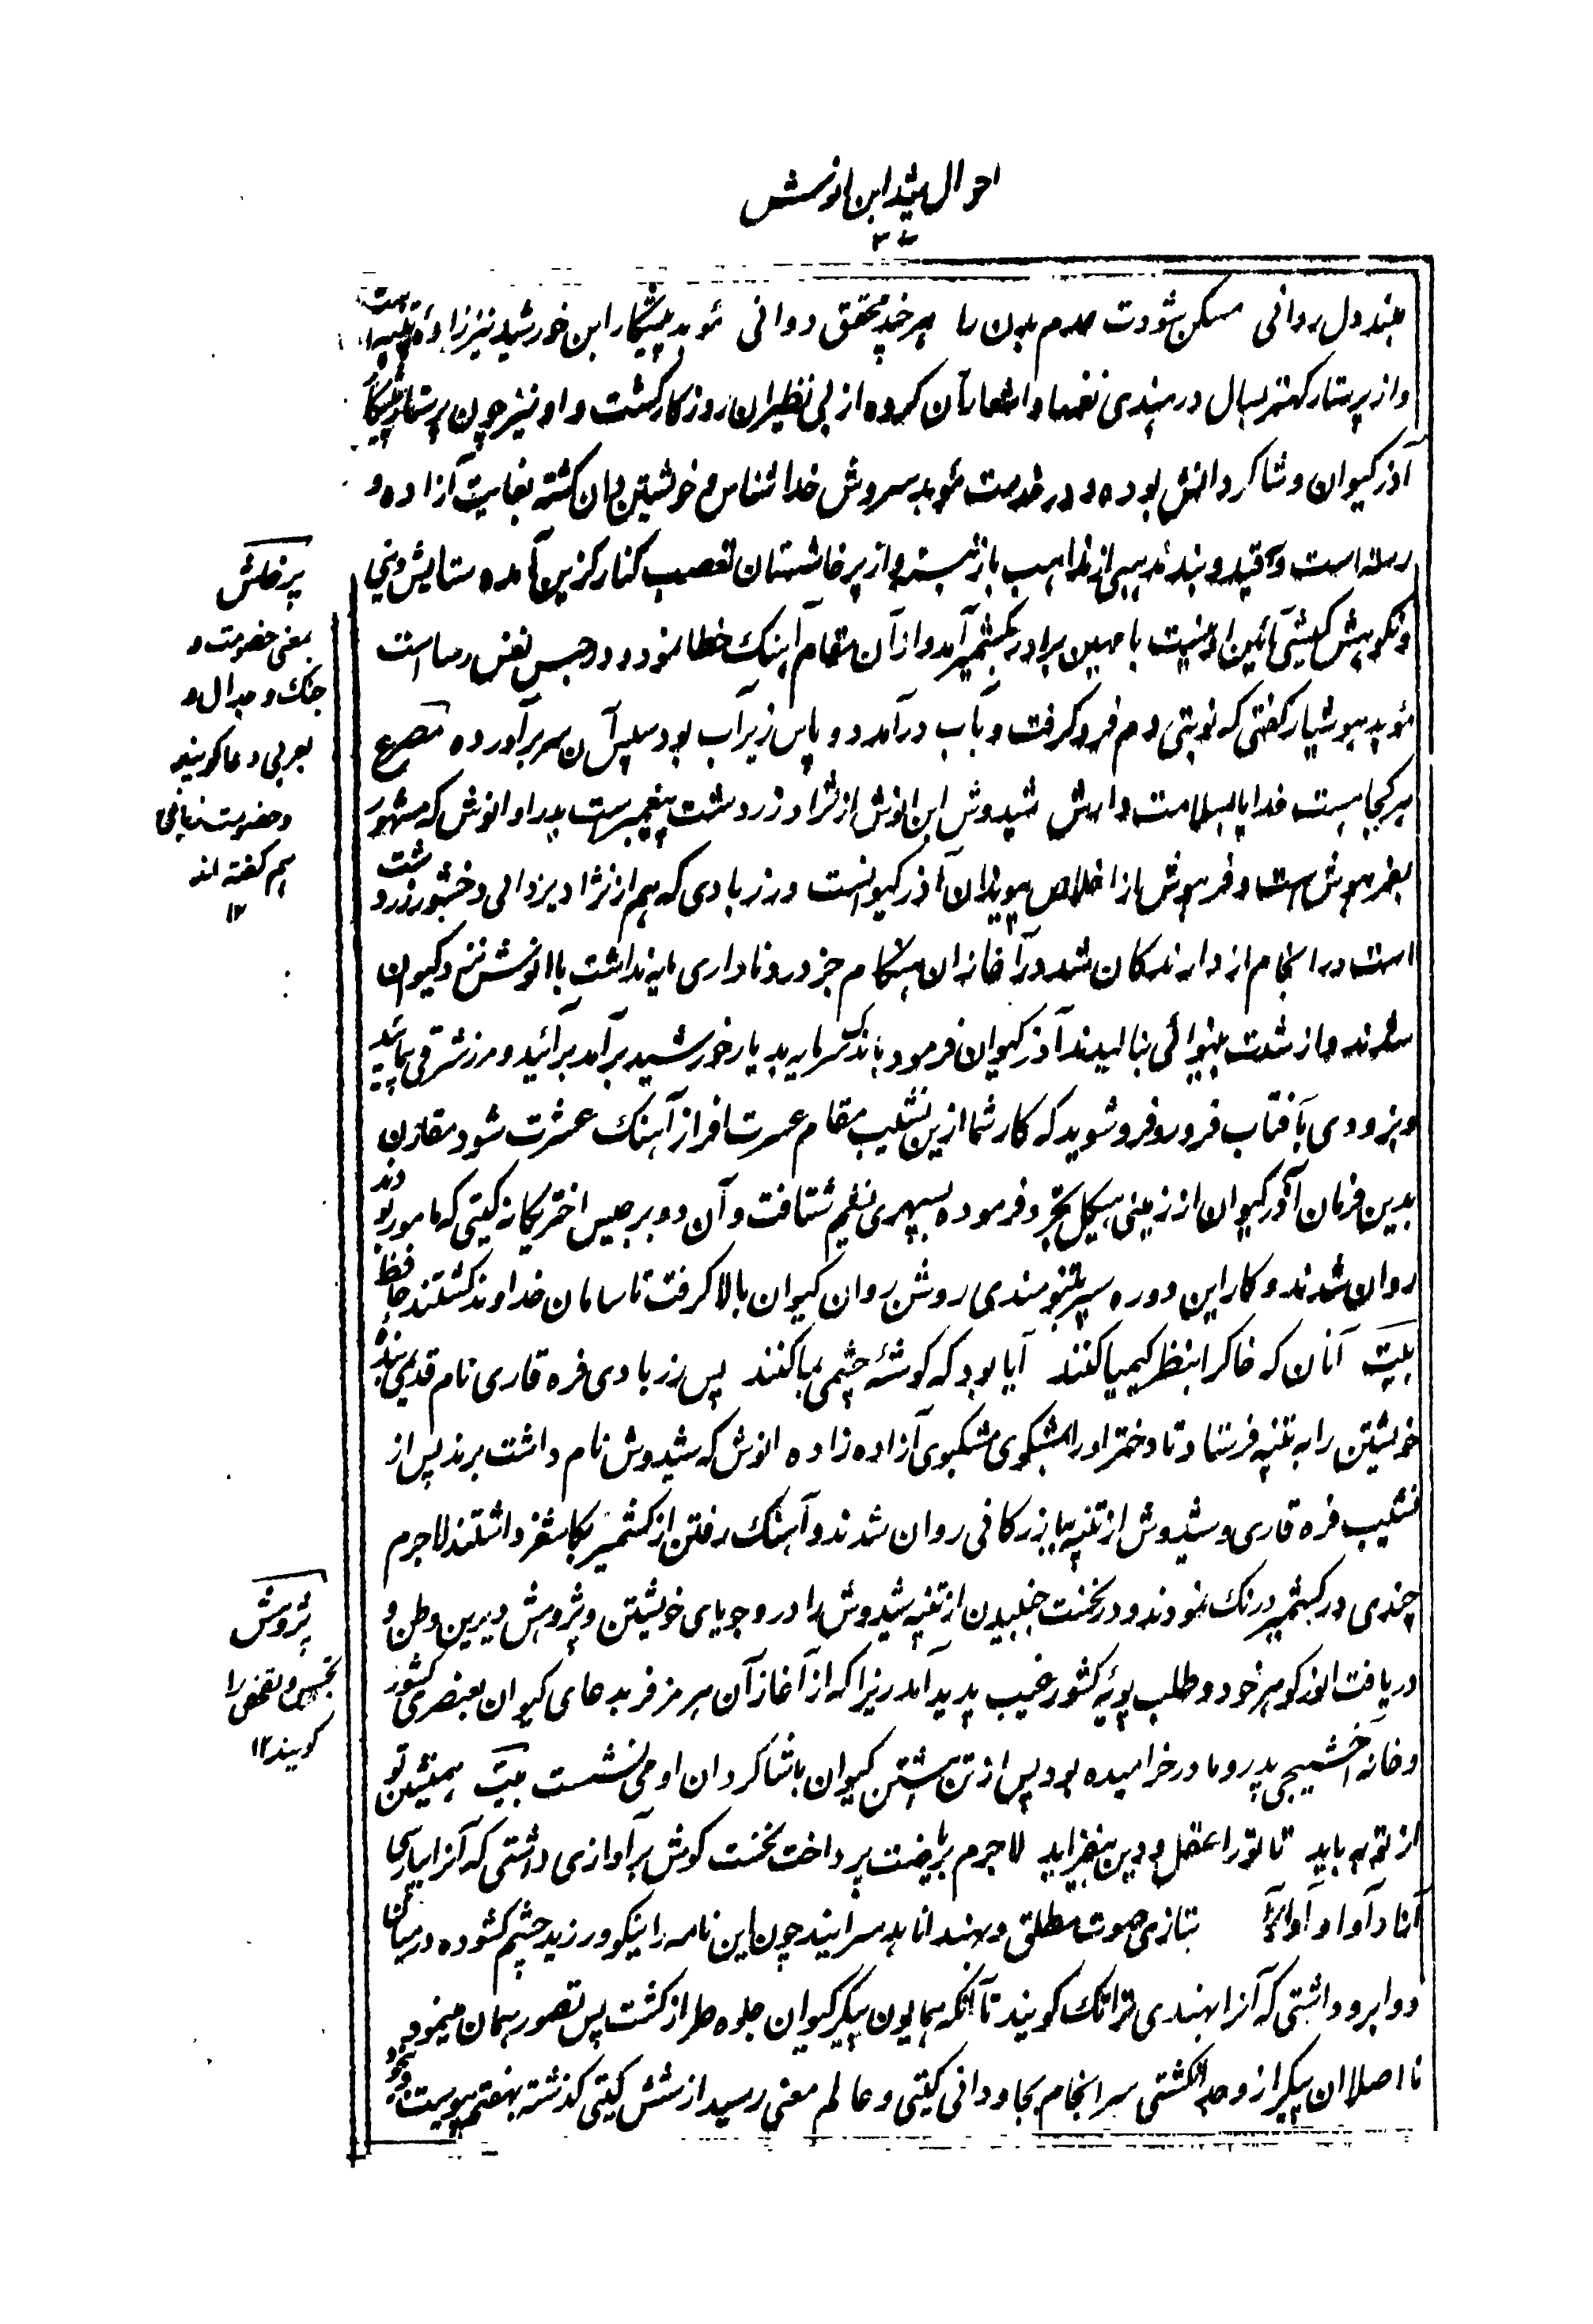 احوال شید ابن انوش
۳۷
بیند دل روانی مسکن شودت صرم بدن را هر چند محقق دوانی موبد پیشکار ابن خورشید نیز زاده پتنه است
و از پرستار کهتر سال در هندی نغمها و اشعار آن کروه از بی نظیران روزکار کشت و او نیز چون پرستار پیشکار
آذر کیوان و شاکر دانش بوده و در خدمت موبد سروش خدا شناس و خویشتن دان کشته بغایت آزاده و
رسته است و قید و بند مذهبی از مذاهب باز نبسته و از پرخاشستان تعصب کنار کزین آمده ستایش دینی
و نکوهش کیشی آئین او نیست با مهین برادر بکشمیر آمد و از آن مقام آهنک خطا نمود و در حبس نفس رسا است
موبد هوشیار کفتی که نوبتی دم فرو کرفت و بآب درآمد دو پاس زیر آب بود سپس آن سر برآورده مصرع
هر کجا هست خدایا بسلامت دارش شیدوش ابن انوش از نژاد زردشت پیغمبر ست پدر او انوش که مشهور
بفر هوش است و فر هوش از اخلاص پویان آذر کیوانست و زر بادی که هم از نژاد یزدانی وخشور زردشت
است در انجام از دارندکان شد در آغاز ان هنکام جز درو ناداری مایه نداشت با انوش نزد کیوان
شدند و از شدت بینوائی بنالیدند آذر کیوان فرمود باندک سرمایه بدیار خورشید برآمد برآئید و مرز شرقی پمائید
و بزودی بآفتاب فرو رو فرو شوید که کار شما ازین نشیب مقام عسرت افراز آهنک عشرت شود مقارن
بدین فرمان آذر کیوان از زمینی هیکل تجرد فرموده بسپهری نعیم شتافت و آن دو برجیس اختر یکانه کیتی که مامور بودند
روان شدند و کار این دو ره سپر بتنومندی روشن روان کیوان بالا کرفت تا سامان خداوند کشتند حافظ
بیت آنان که خاک را بنظر کیمیا کنند آیا بود که کوشهٔ چشمی بما کنند پس زر بادی فره قاری نام قدیمی بنده
خویشتن را به تپنه فرستاد تا دختر او را بمشکوی مشکبوی آزاده زاده انوش که شیدوش نام داشت برند پس از
شکیب فره قاری و شیدوش از پتنه ببازرکانی روان شدند و آهنک رفتن از کشمیر بکاشغر داشتند لاجرم
چندی در کشمیر درنک نمودند و در نخست جنبیدن از پتنه شیدوش را درد جویای خویشتن و پژوهش دیرین وطن و
دریافت انوز کوهر خود و طلب پویه کشور غیب پدید آمد زیرا که از آغاز آن هرمز فر بدعای کیوان بعنصری کشور
و خانه آخشیجی پدر و مادر خرامیده بود پس از تن هشتن کیوان با شاکردان او می نشست بیت همنشین تو
از تو به باید تا تو را عقل و دین بیفزاید لاجرم بریاضت پرداخت نخست کوش بر آوازی داشتی که آنرا بپارسی
آزاد آوا و آوا بتازی صوت مطلق و بهند اناهد سرایند چون این نامه را نیکو ورزید چشم کشوده در میان
دو ابرو داشتی که آنرا بهندی تراتک کویند تا آنکه همایون پیکر کیوان جلوه طراز کشت پس تصور همان مینمود
تا اصلا ان پیکر از وجدا نکشتی سر انجام بجاودانی کیتی و عالم معنی رسید از شش کیتی کذشته بهفتم پیوست
پرخاش
بمعنی خصومت و
جنک و جدال و
بعربی دعا کویند
و خصومت زبانی
هم کفته اند
۱۲
پژوهش
تجسس و تفحص را
کویند ۱۲